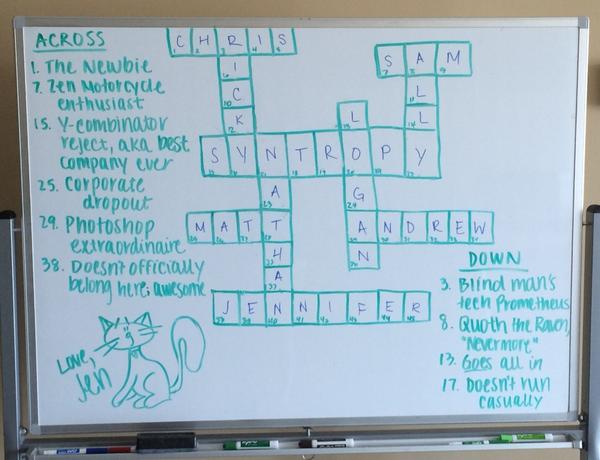 ACROSS
1. The Newbie
7. Zen Motorcycle
enthusiast
15. Y-combinator
reject, aka best
company ever
25. Corporate
dropout
29. Photoshop
extraordinaire
38. Doesn't officially
belong here; awesome
CHRIS
RICK
SAM
ALLY
SYNTROPY
LOGAN
NATHAN
MATT
ANDREW
JENNIFER
DOWN
3. Blind man's
tech Prometheus
8. Quoth the Raven,
"Nevermore"
13. Goes all in
17. Doesn't run
casually
Love,
Jen